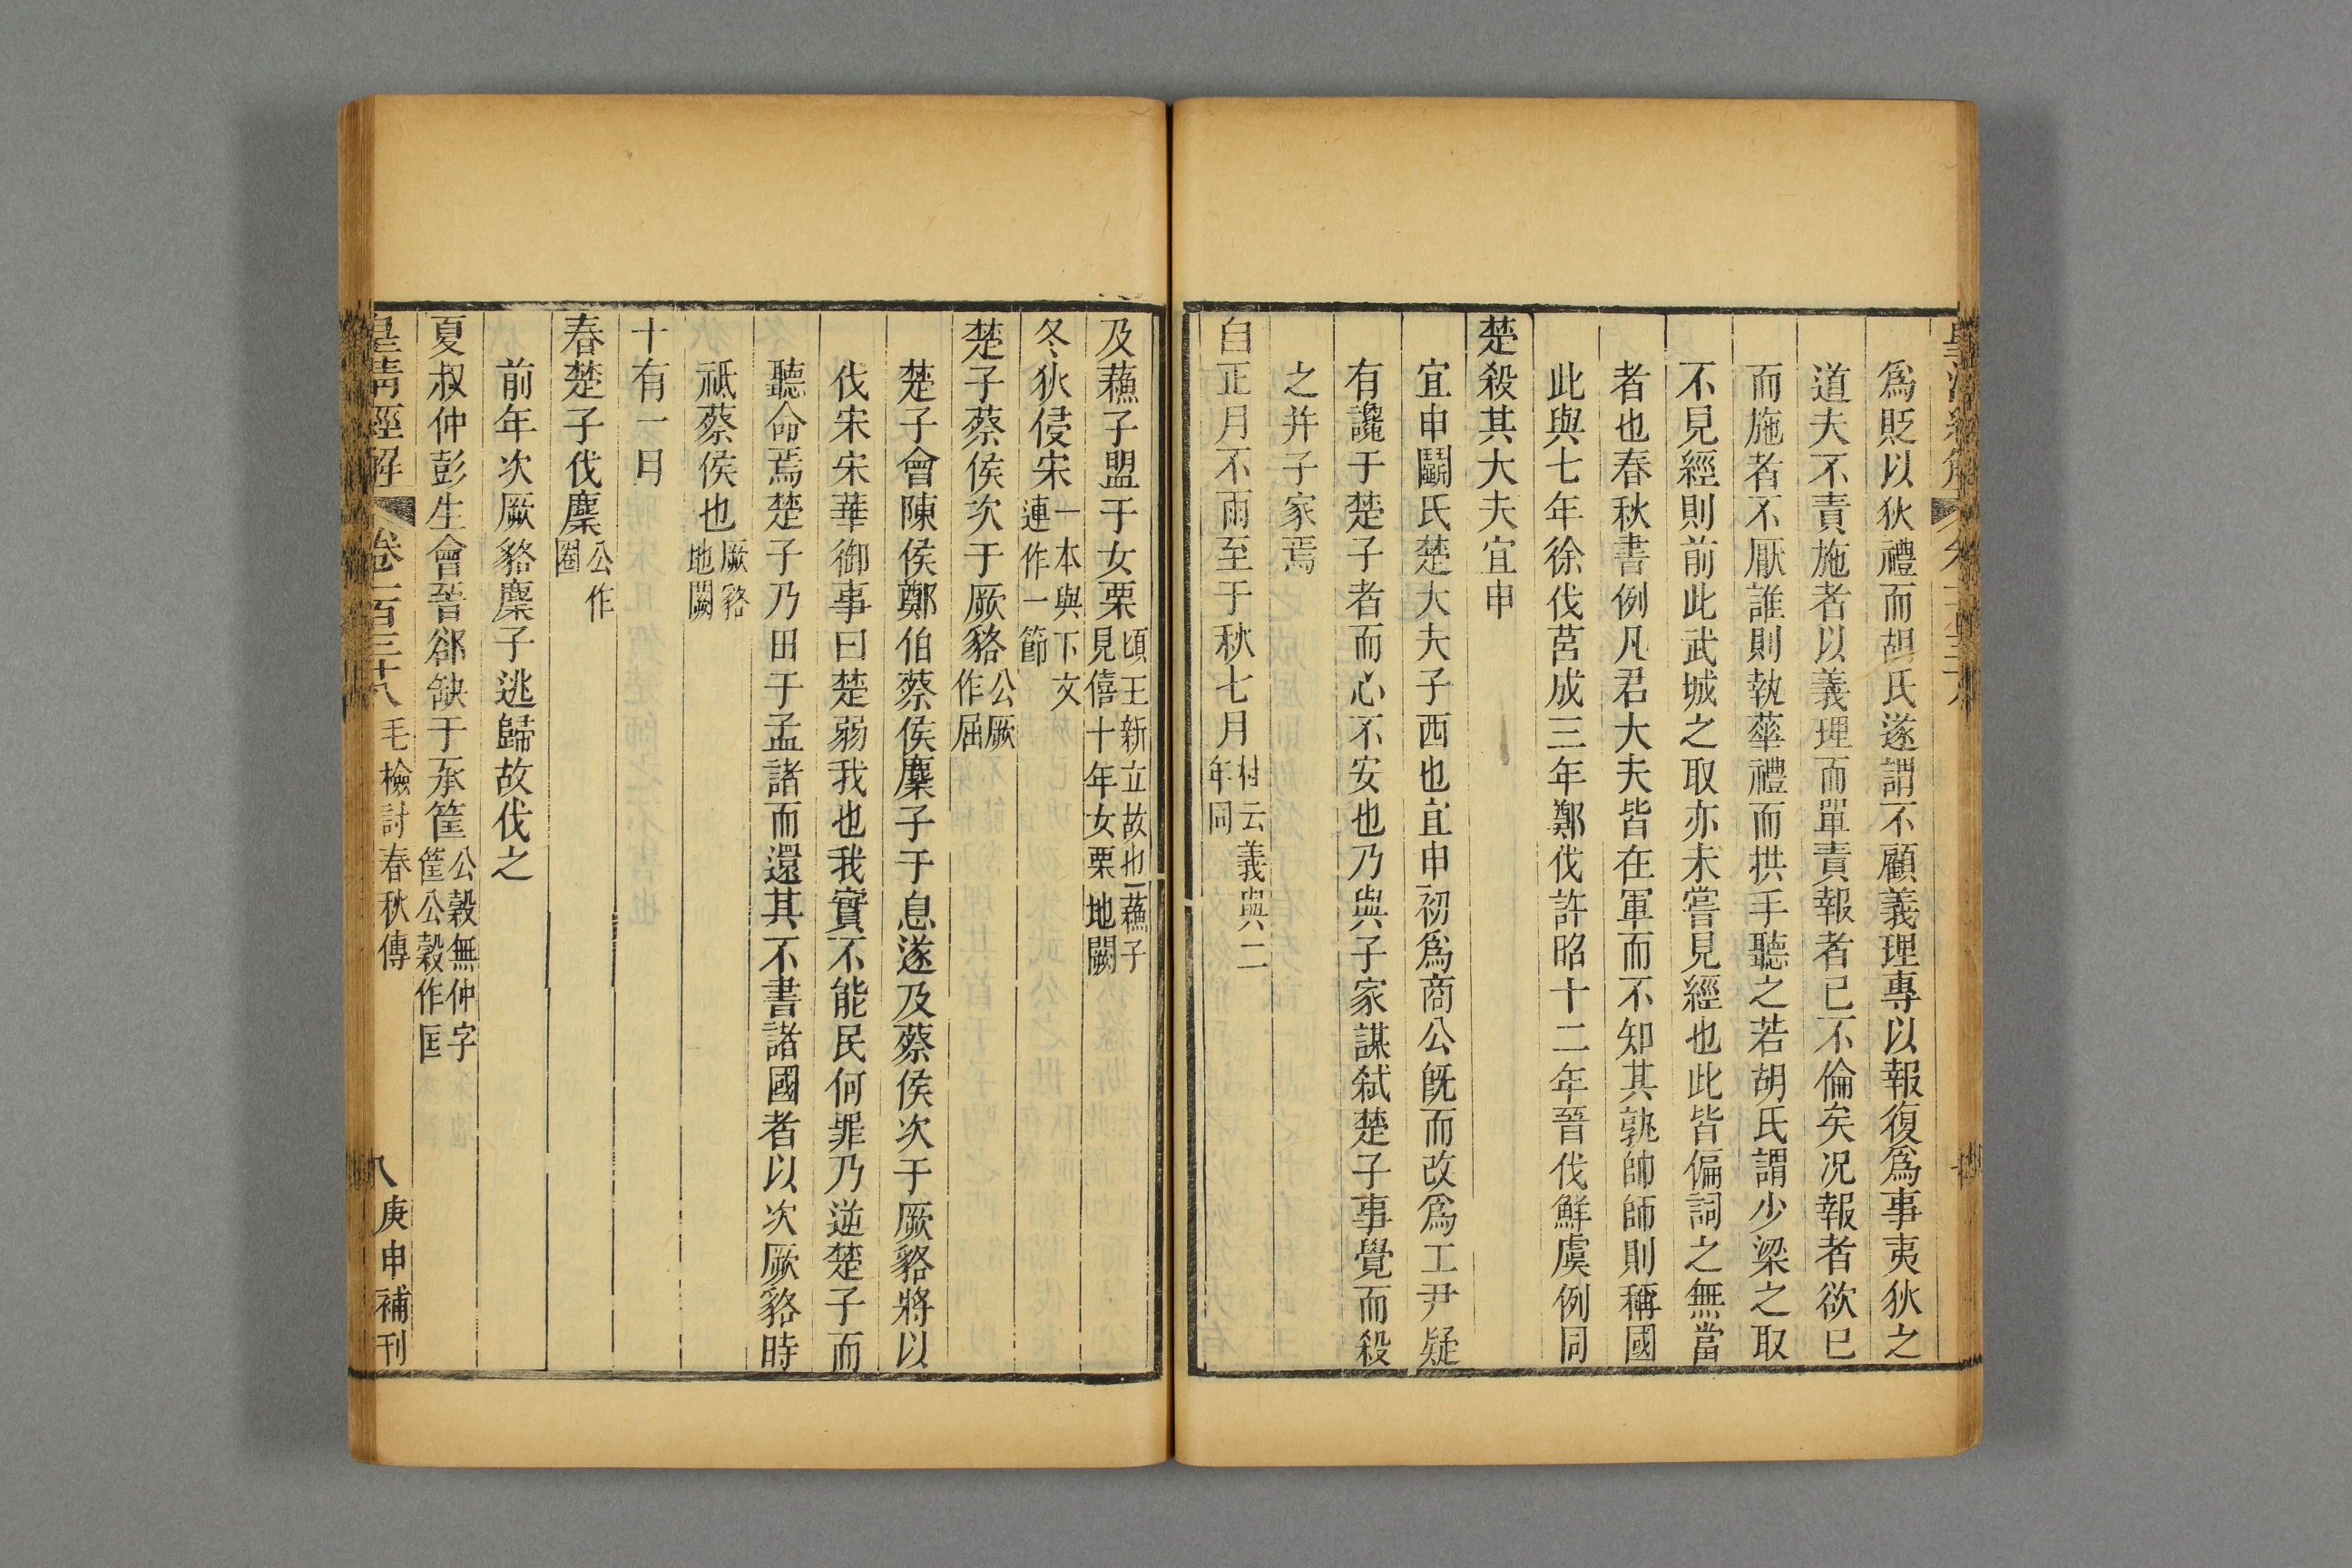 爲貶以狄禮而胡氏遂謂不顧義理專以報復爲事夷狄之
道夫不責施者以義理而單責報者已不倫矣况報者欲已
而施者不厭誰則執葬禮而拱手聽之若胡氏謂少梁之取
不見經則前此武城之取亦未嘗見經也此皆偏詞之無當
者也春秋書例凡君大夫皆在軍而不知其孰帥師則稱國
此與七年徐伐莒成三年鄭伐許昭十二年晉伐鮮虞例同
楚殺其大夫宜申
宜申鬭氏楚大夫子西也宜申初爲商公旣而改爲工尹疑
有讒于楚子者而心不安也乃與子家謀弑楚子事覺而殺
之并子家焉
自正月不雨至于秋七月村云義與二年同
及蘓子盟于女栗頃王新立故也蘓子見僖十年女栗地闕
冬狄侵宋一本與下文連作一節
楚子蔡侯次于厥貉公厥作屈
楚子會陳侯鄭伯蔡侯麇子于息遂及蔡侯次于厥貉將以
伐宋宋華御事曰楚弱我也我實不能民何罪乃逆楚子而
聽命焉楚子乃田于孟諸而還其不書諸國者以次厥貉時
祗蔡侯也厥貉地闕
十有一月
春楚子伐麇公作圈
前年次厥貉麇子逃歸故伐之
夏叔仲彭生會晉郤缺于承筐公穀無仲字筐公穀作匡
皇清經解 卷一百三十八 毛檢討春秋傳 八 庚申補刊